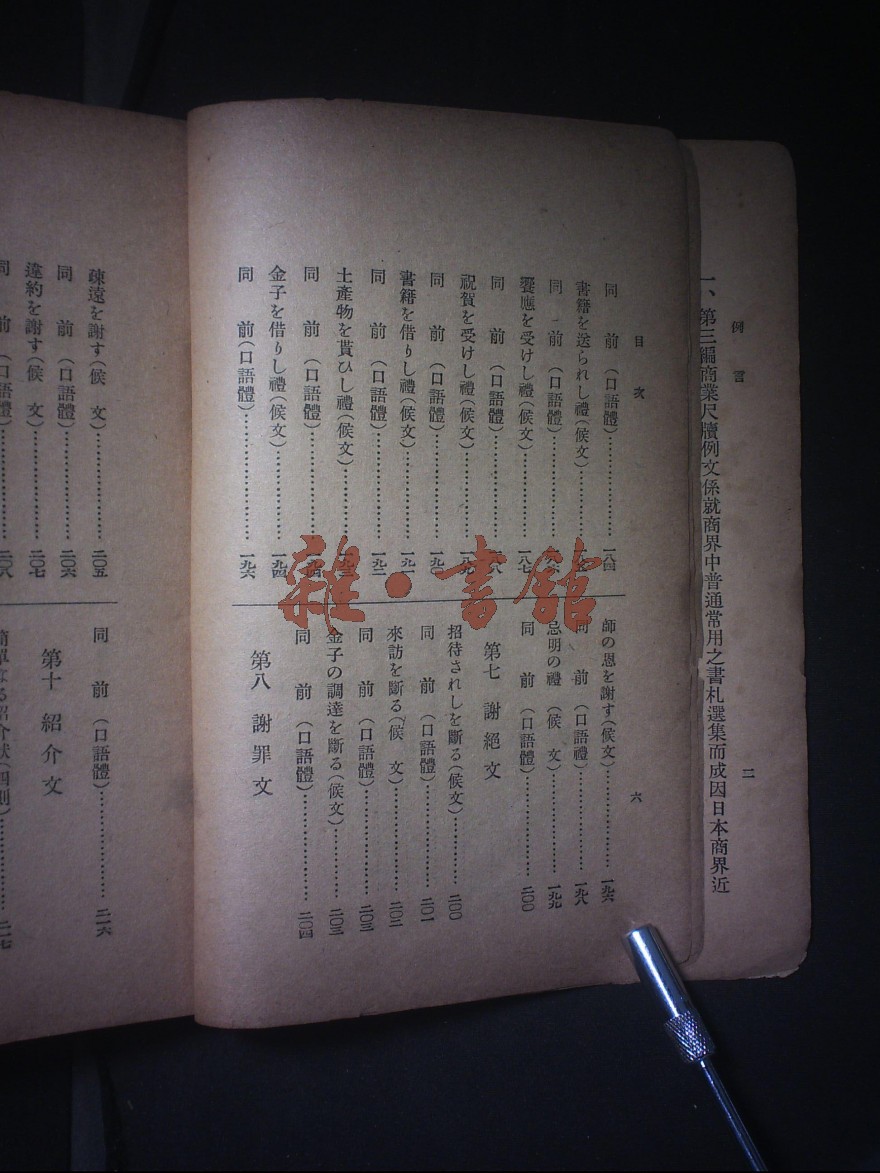 例言
二
一、第三編商業尺牘例文係就商界中普通常用之書札選集而成因日本商界近
目次
六
同前（口語體）……一八四
書籍を送られし禮（候文）
同前（口語體）
饗應を受けし禮（候文）……一八七
同前（口語體）
祝賀を受けし禮（候文）
同前（口語體）……一九〇
書籍を借りし禮（候文）……一九一
同前（口語體）……一九二
土產物を貰ひし禮（候文）
同前（口語體）
金子を借りし禮（候文）……一九四
同前（口語體）……一九六
師の恩を謝す（候文）……一九六
同前（口語禮）……一九八
忌明の禮（候文）……一九九
同前（口語體）……二〇〇
第七 謝絕文
招待されしを斷る（候文）……二〇〇
同前（口語體）……二〇一
來訪を斷る（候文）……二〇二
同前（口語體）……二〇三
金子の調達を斷る（候文）……二〇三
同前（口語體）……二〇四
第八 謝罪文
疎遠を謝す（候文）……二〇五
同前（口語體）……二〇六
違約を謝す（候文）……二〇七
同前（口語體）……二〇八
同前（口語體）……二一六
第十 紹介文
簡單なる紹介狀（四則）……二一七
雜·書館